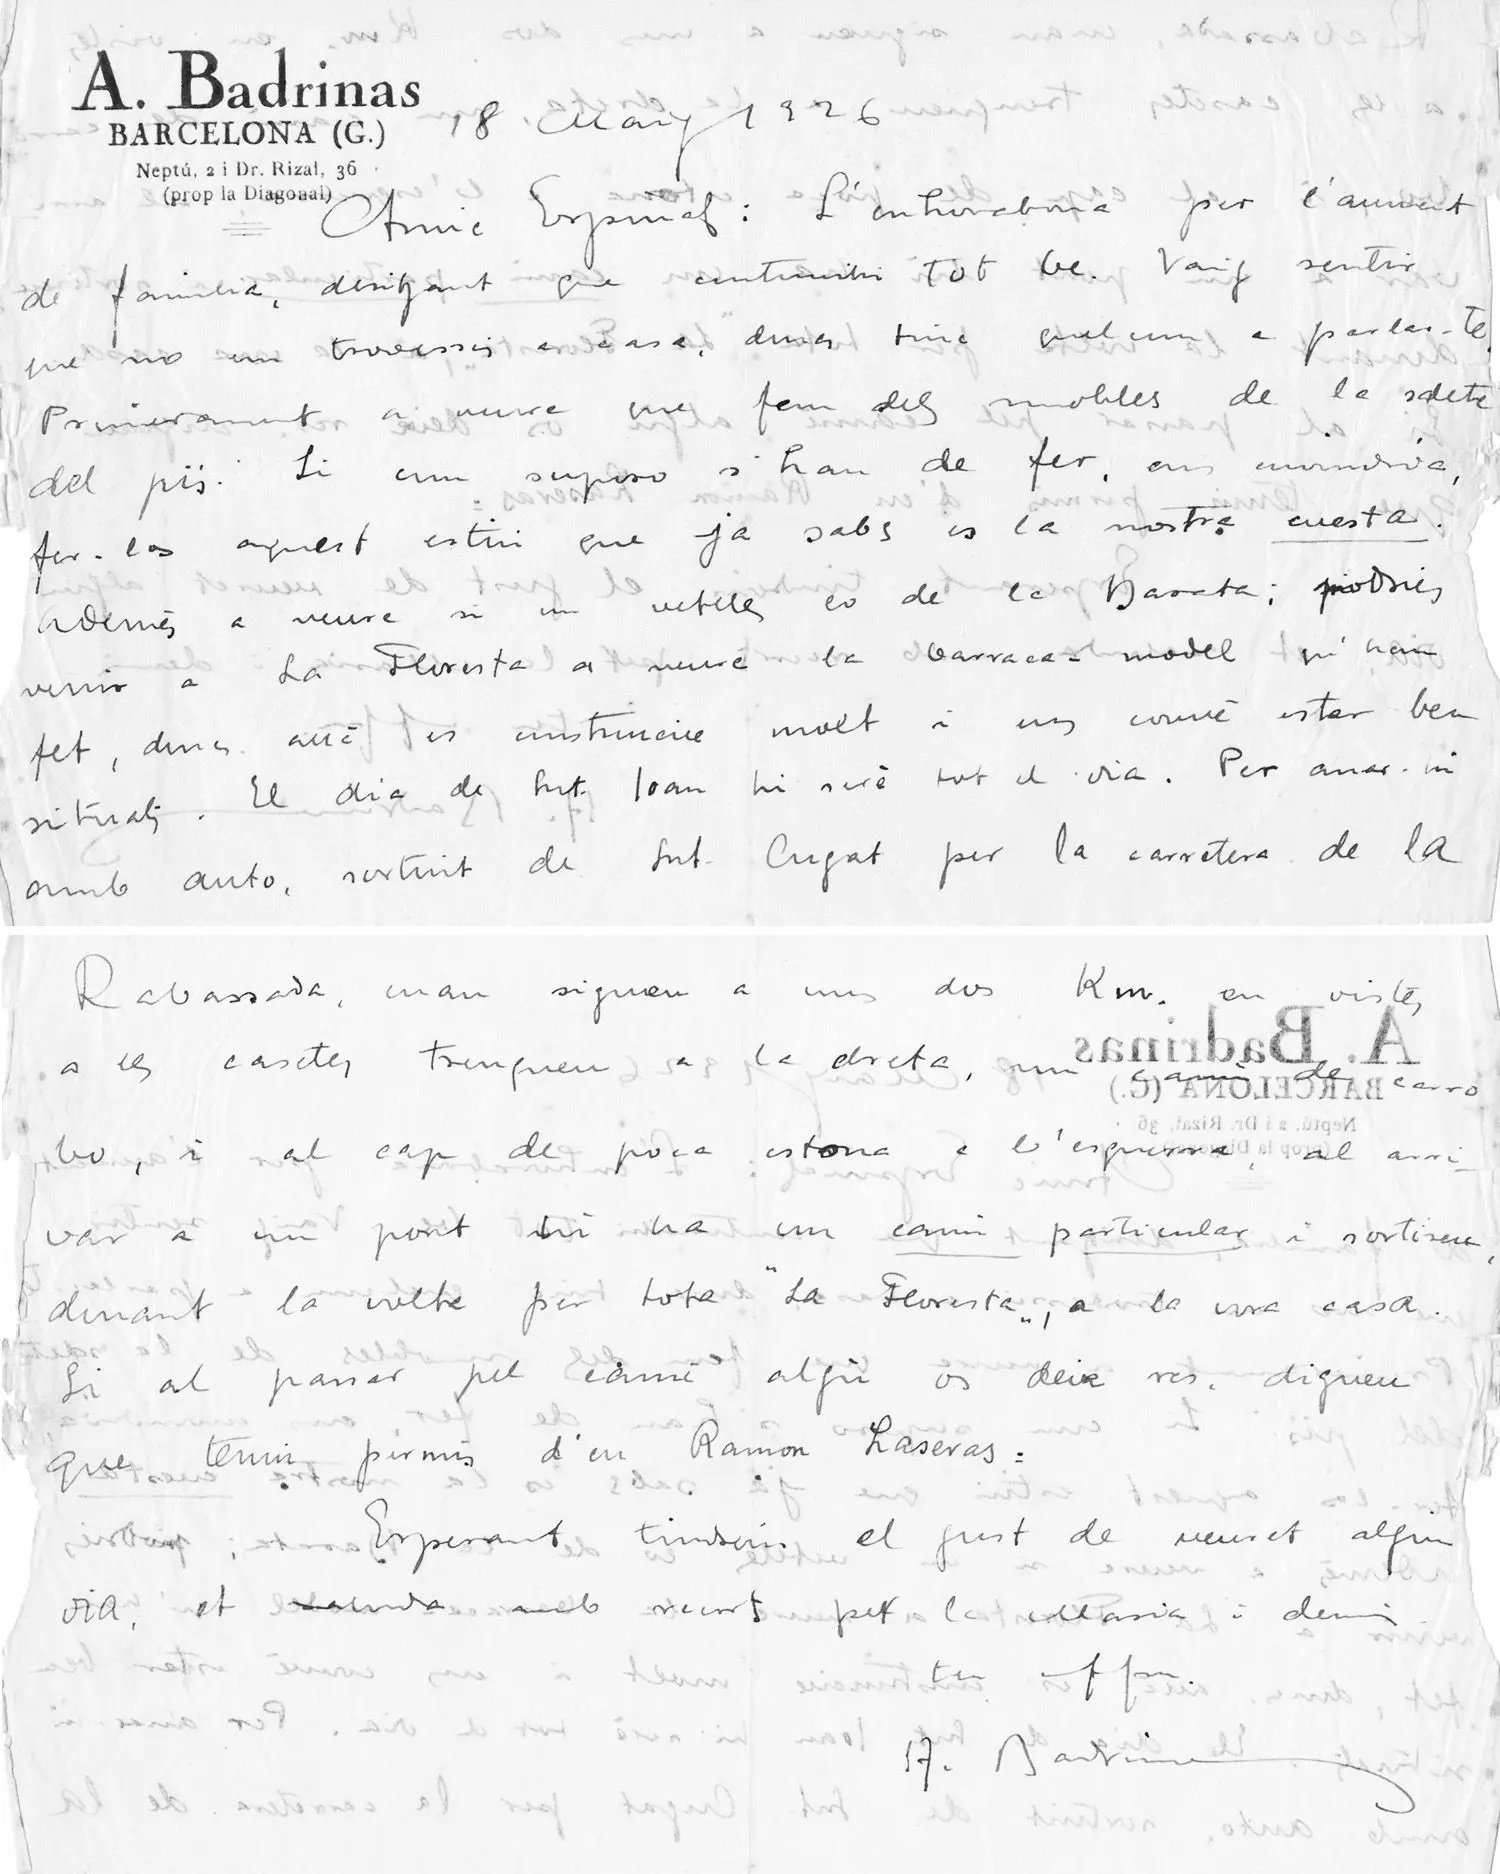 A. Badrinas
BARCELONA (G.)
Neptú, 2 i Dr. Rizal, 36
(prop la Diagonal)
18 Maig 1926
Amic Espinal: L'enhorabona per l'aument
de familia, desitjant que continuin tot be. Vaig sentir
que no em trovessis a casa, dues tinc quelcom a parlar-te.
Primerament a veure que fem dels mobles de la saleta
del pis. Si com suposo s'han de fer, ens convindria,
fer-los aquest estiu que ja sabs es la nostra cuesta.
Ademés a veure si em vetlles lo de la Barata; podries
venir a La Floresta a veure la barraca-model qu'han
fet, dues això es instructiu molt i ens convé estar ben
situats. El dia de Snt. Joan hi seré tot el dia. Per anar-hi
amb auto, sortint de Snt. Cugat per la carretera de la
Rabassada, quan sigueu a uns dos Km. en vistes
a les casetes trenqueu a la dreta, un camí de carro
bo, i al cap de poca estona a l'esquerra, al arri-
var a un pont hi ha un camí particular i sortireu,
donant la volta per tota "La Floresta", a la vora casa.
Si al passar pel camí algú os deia res, digueu
que teniu permís d'en Ramon Laseras=
Esperant tindrem el gust de veuret algun
dia, et saluda amb recorts pet la Masia i demés
teu affm.
A. Badrinas